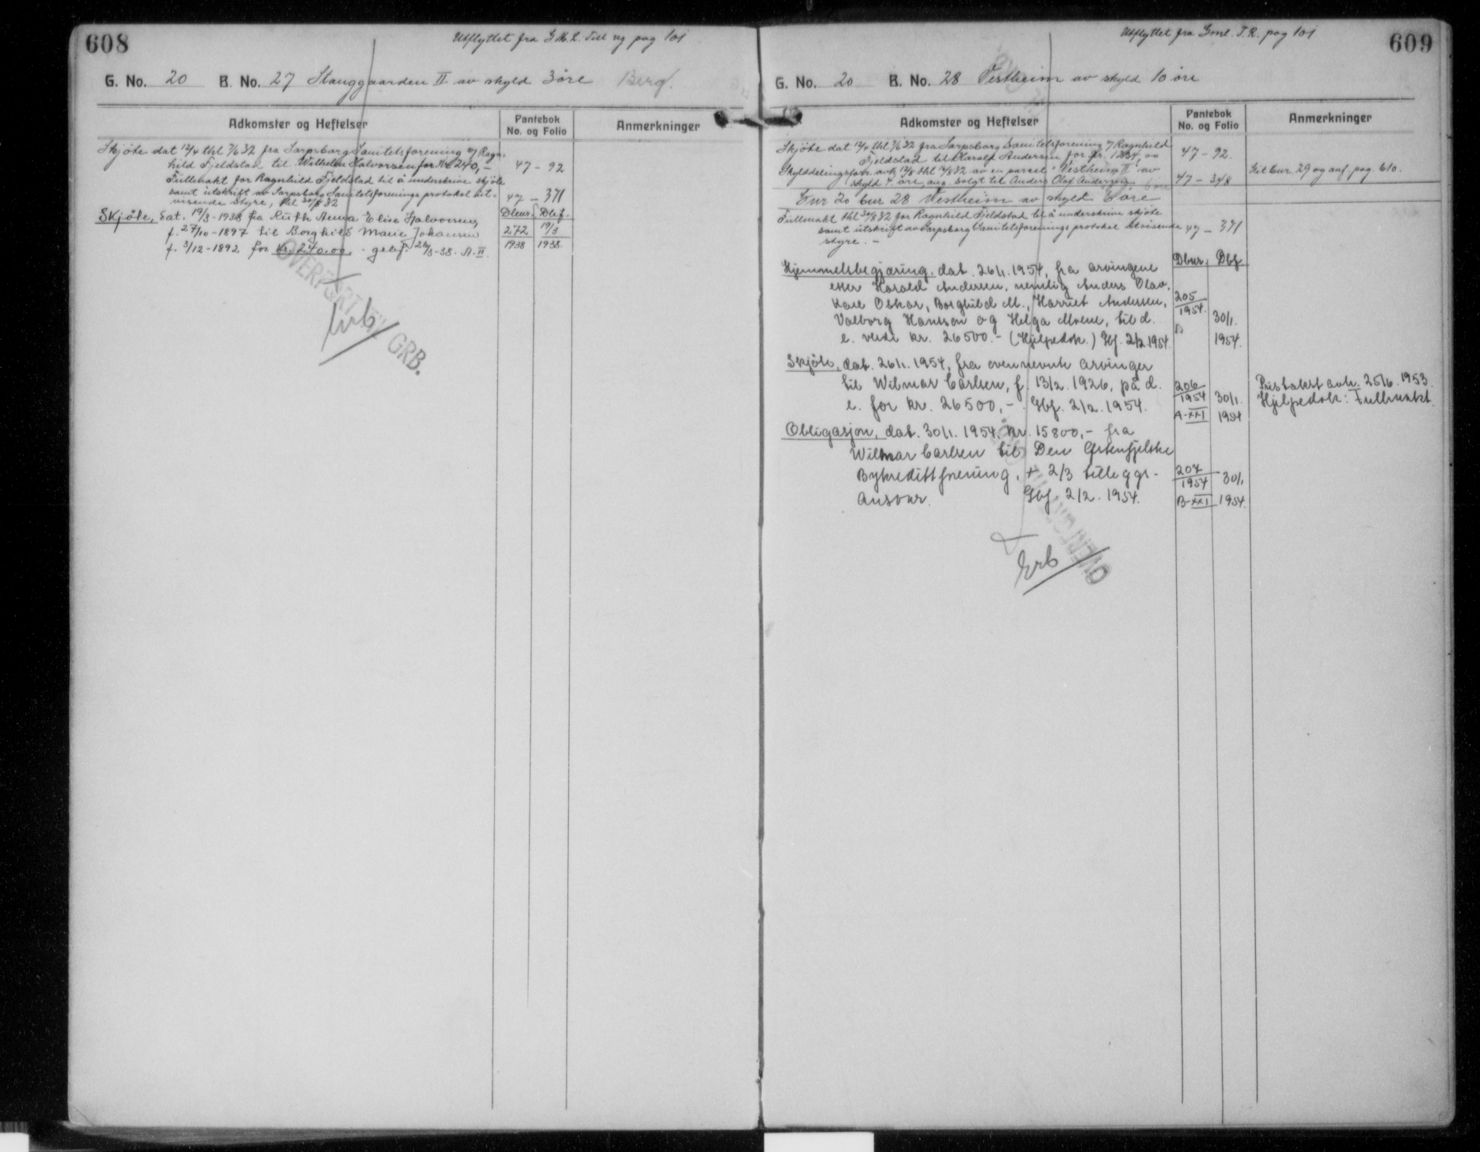 608
Utflyttet fra G.M.R. Till ny pag 101
G. No. 20 B. No. 27 Hauggaarden II av skyld 3 øre Berg
Adkomster og Heftelser
Pantebok
No. og Folio
Anmerkninger
Skjøte dat 12/4 thl 7/6 32 fra Sarpsborg Sanitetsforening v/ Ragn-
hild Fjeldstad til Wilhelm Halvorsen for Kr 240,- 47 - 92
Fullmakt for Ragnhild Fjeldstad til å underskrive skjøte
samt utskrift av Sarpsborg Sanitetsforenings protokol bevisende styre, thl 47 - 371
Skjøte, dat. 19/3-1938 fra Ruth Nenra Elise Halvorsen Dbnr. Dbf.
f. 27/10-1897 til Borghild Marie Johansen 272 19/3
f. 3/12-1892 for kr. 240.00. - 1938 1938
OVERFØRT TIL GRB.
Grb
609
Utflyttet fra Gml. T.R. pag 101
G. No. 20 B. No. 28 Vestheim av skyld 10 øre
Adkomster og Heftelser
Pantebok
No. og Folio
Anmerkninger
Skjøte dat 12/4 thl 7/6 32 fra Sarpsborg Sanitetsforening v/ Ragnhild
Fjeldstad til Harald Andersen for kr. 47 - 92
Skylddelingsforr. avh. thl av en parcel Vestheim II av Gil bnr 29 og anf pag. 610.
skyld 4 øre, ang solgt til Anders Olaf Andersen 47 - 348
Gnr 20 bnr 28 Vestheim av skyld 6 øre
Fullmakt thl 30/8 32 for Ragnhild Fjeldstad til å underskrive skjøte
samt utskrift av Sarpsborg Sanitetsforenings protokol bevisende 47 - 371
styre. -
Hjemmelsbegjæring, dat. 26/1. 1954, fra arvingene Dbnr. Dbf.
etter Harald Andersen, nemlig Anders Olav,
Kåre Oskar, Borghild M., Harriet Andersen, 205
Valborg Hansson og Helga Moene, til d. 1954 30/1.
e. verdi kr. 26500.- (Hjelpedok.) Gbf. 2/2.1954. 1954.
Skjøte, dat. 26/1. 1954, fra ovennevnte arvinger
til Wilmar Carlsen, f. 13/2. 1926, på d. 206 Pristakst avh. 25/6. 1953.
e. for kr. 26500,-. Gbf. 2/2. 1954. 1954 30/1. Hjelpedok: Fullmakt.
A-XXI 1954
Obligasjon, dat. 30/1. 1954, kr. 15800,- fra
Wilmar Carlsen til Den Østenfjelske
Bykredittforening, + 2/3 tilleggs- 207 30/1.
ansvar. Gbf. 2/2. 1954. 1954
B-XXI 1954.
OVERFØRT TIL GRB
Grb